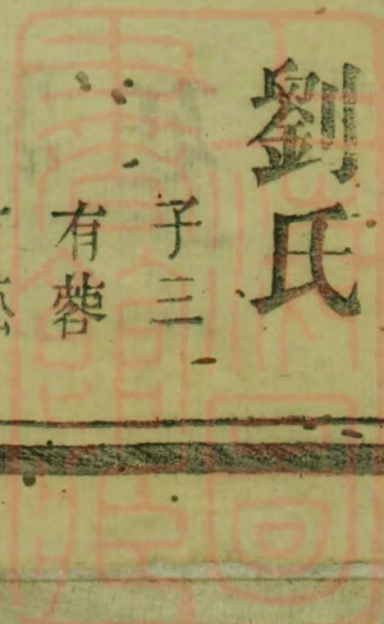 劉氏
子三
有蓉